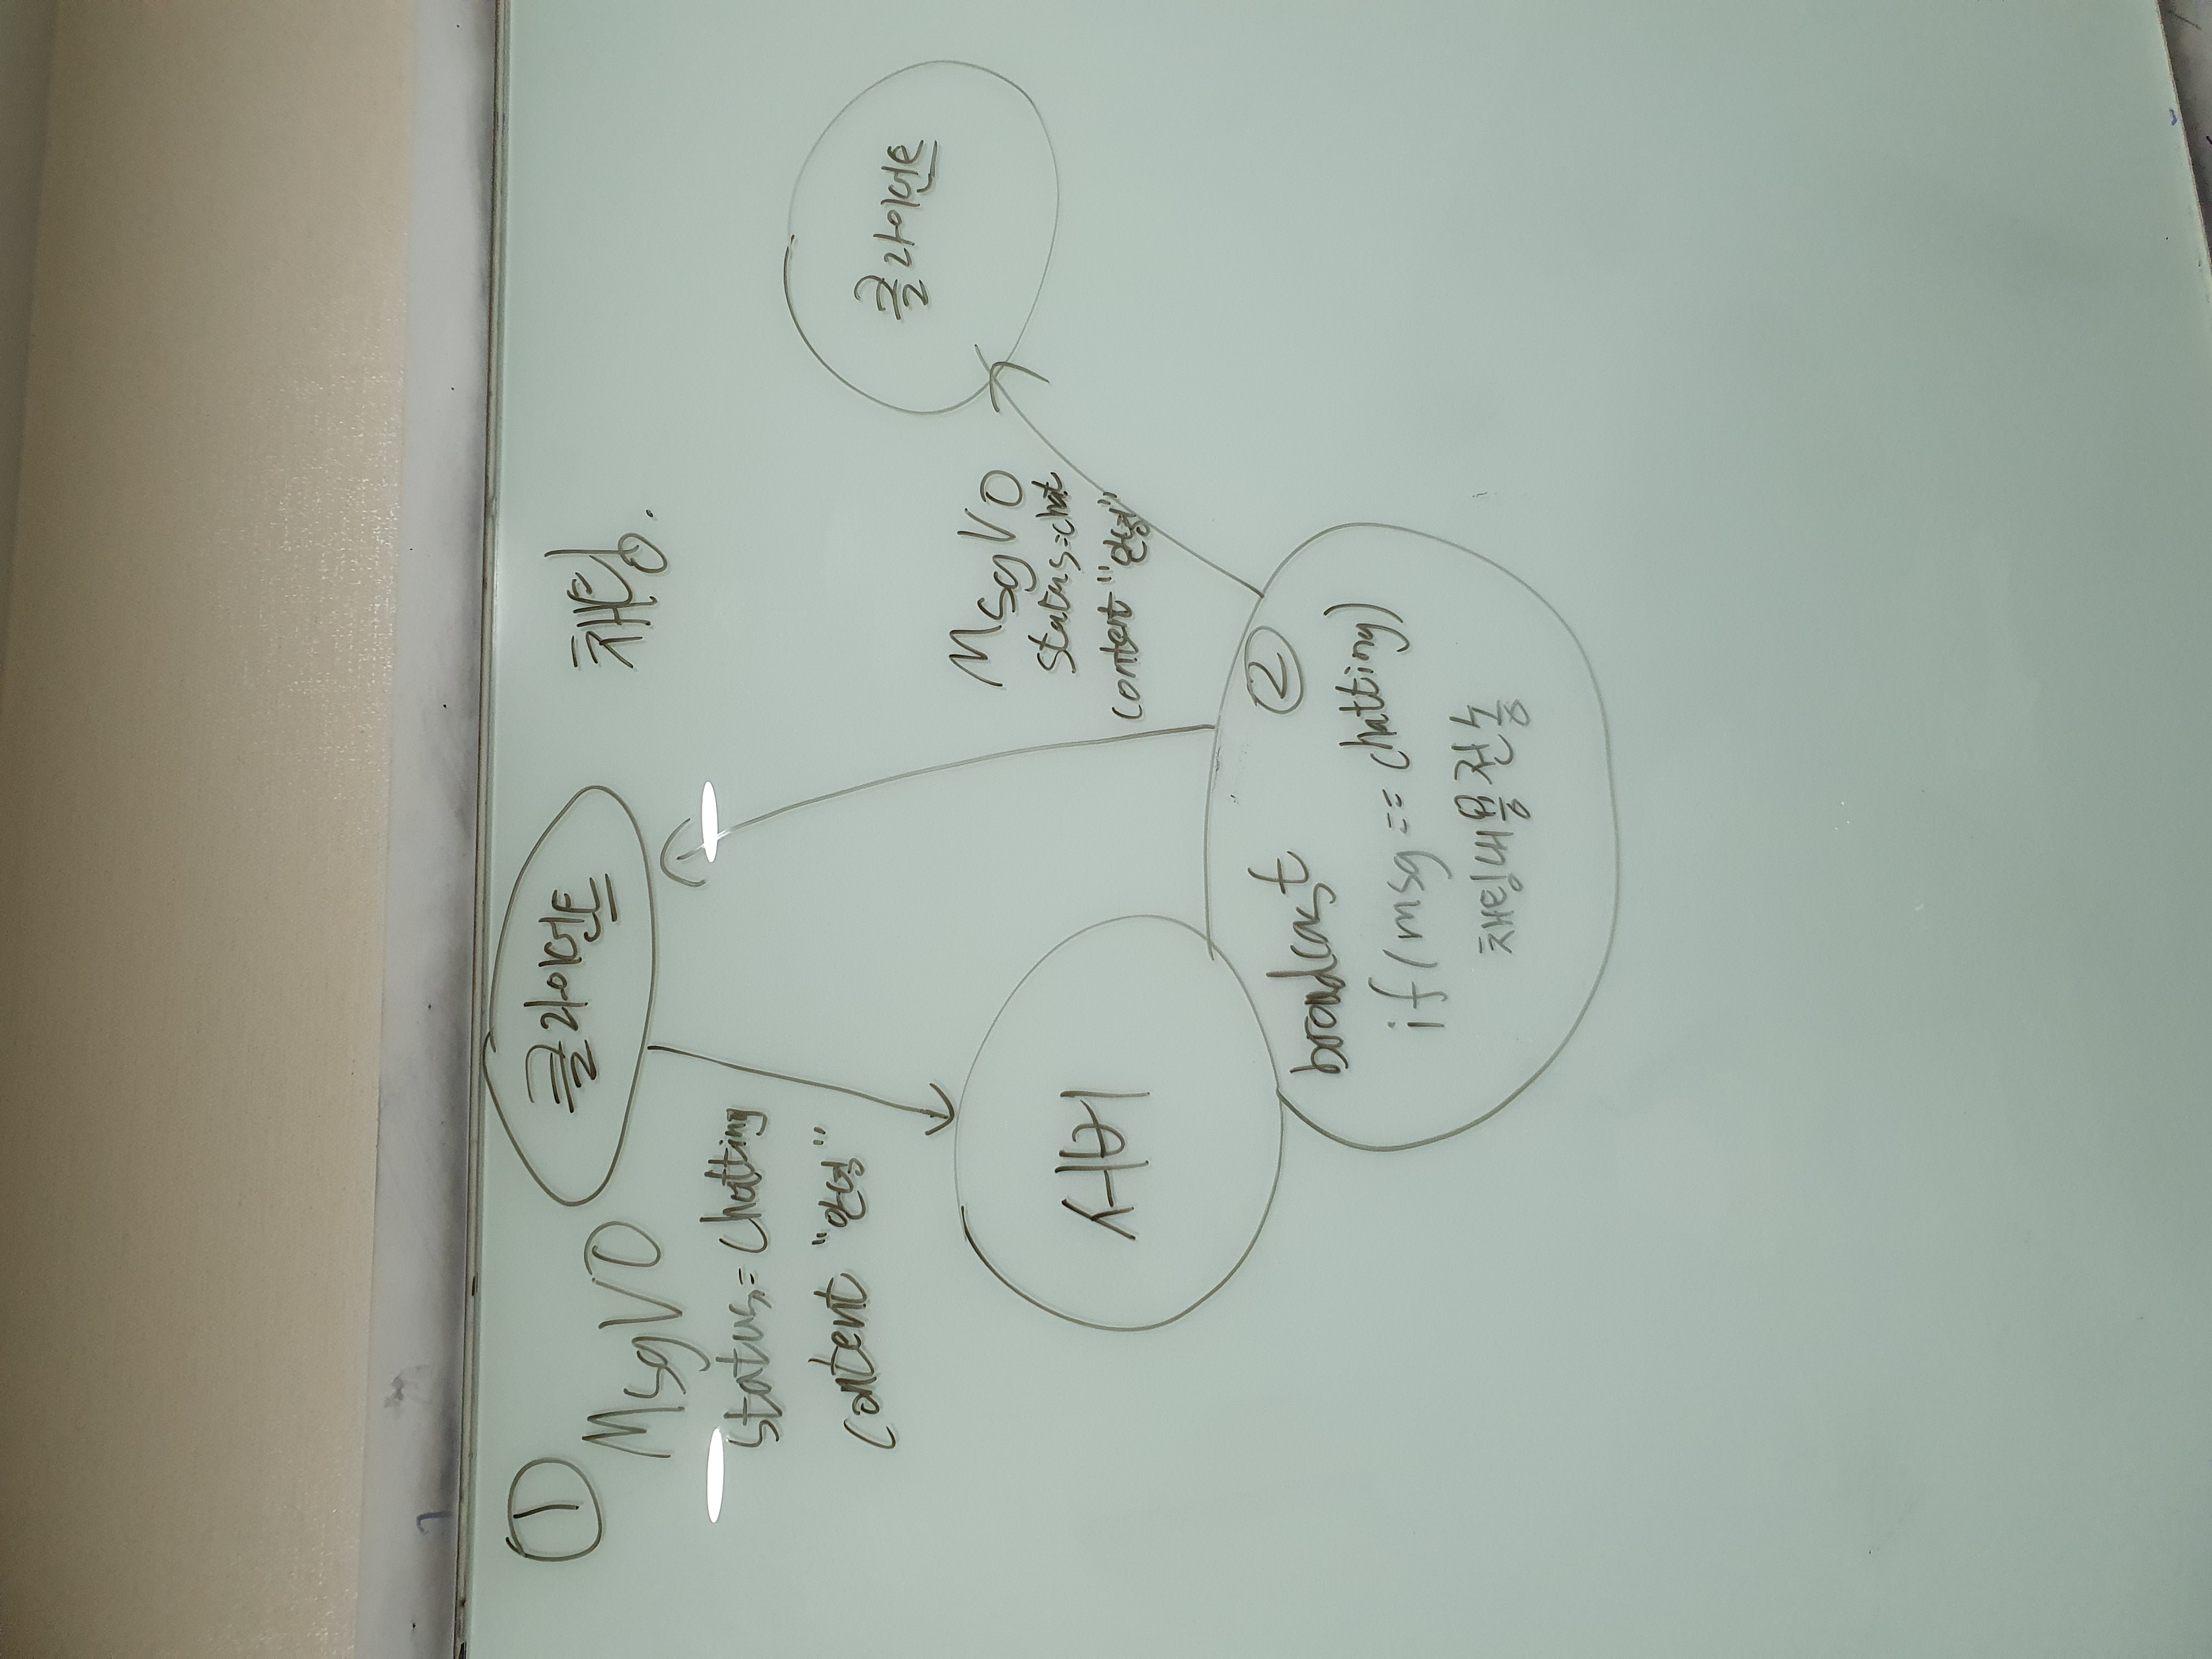 ①
클라이언트
채팅.
MsgVO
status= chatting
content "안녕"
클라이언트
MsgVO
status=chat
content "안녕"
서버
broadcast ②
if(msg == chatting)
채팅내용전송